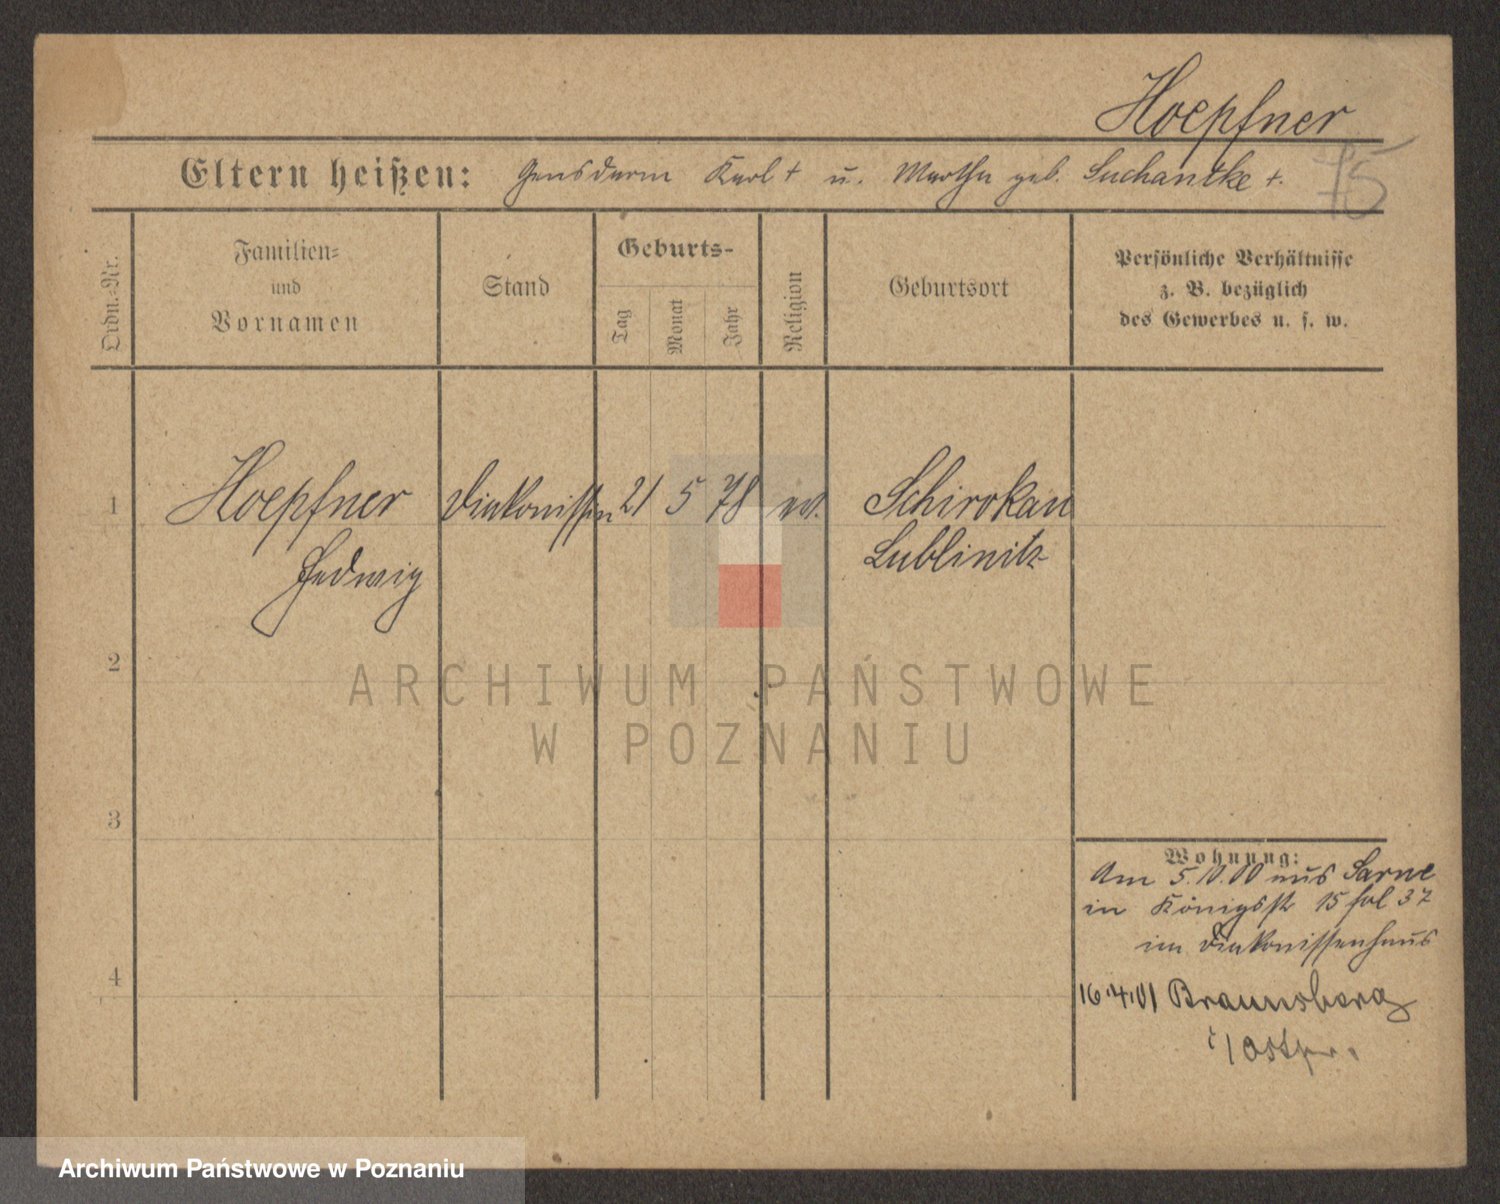 Hoepfner
75
Eltern heißen: Gensdarm Karl + u. Martha geb. Suchantke +.
Ordn.-Nr.
Familien-
und
Vornamen
Stand
Geburts-
Tag
Monat
Jahr
Religion
Geburtsort
Persönliche Verhältnisse
z. B. bezüglich
des Gewerbes u. s. w.
1 Hoepfner Diakonissin 21 5 78 ev. Schirokau
Hedwig Lublinitz
2
ARCHIWUM PAŃSTWOWE
W POZNANIU
3
Wohnung:
Am 5.10.00 aus Sarne
in Königsstr 15 fol 37
im Diakonissenhaus
4
16.4.01 Braunsberg
i/Ostpr.
Archiwum Państwowe w Poznaniu